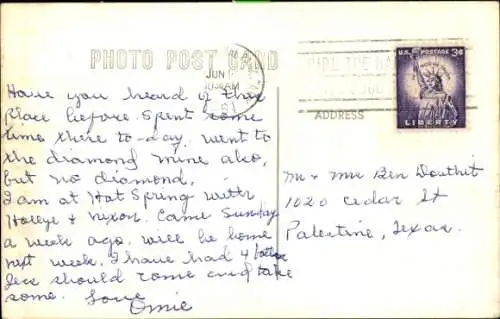 PHOTO POST CARD
JUN
10 30 AM
U.S. POSTAGE 3¢
LIBERTY
ADDRESS
Have you heard of this
place before. Spent some
time there to-day, went to
the diamond mine also,
but no diamond.
I am at Hot Spring with
Hollye & Nixon. Came Sunday
a week ago. will be home
next week. I have had 4
Jess should come and take
some. Love
Omie
Mr & Mrs Ben Douthit
1020 Cedar St
Palestine, Texas.